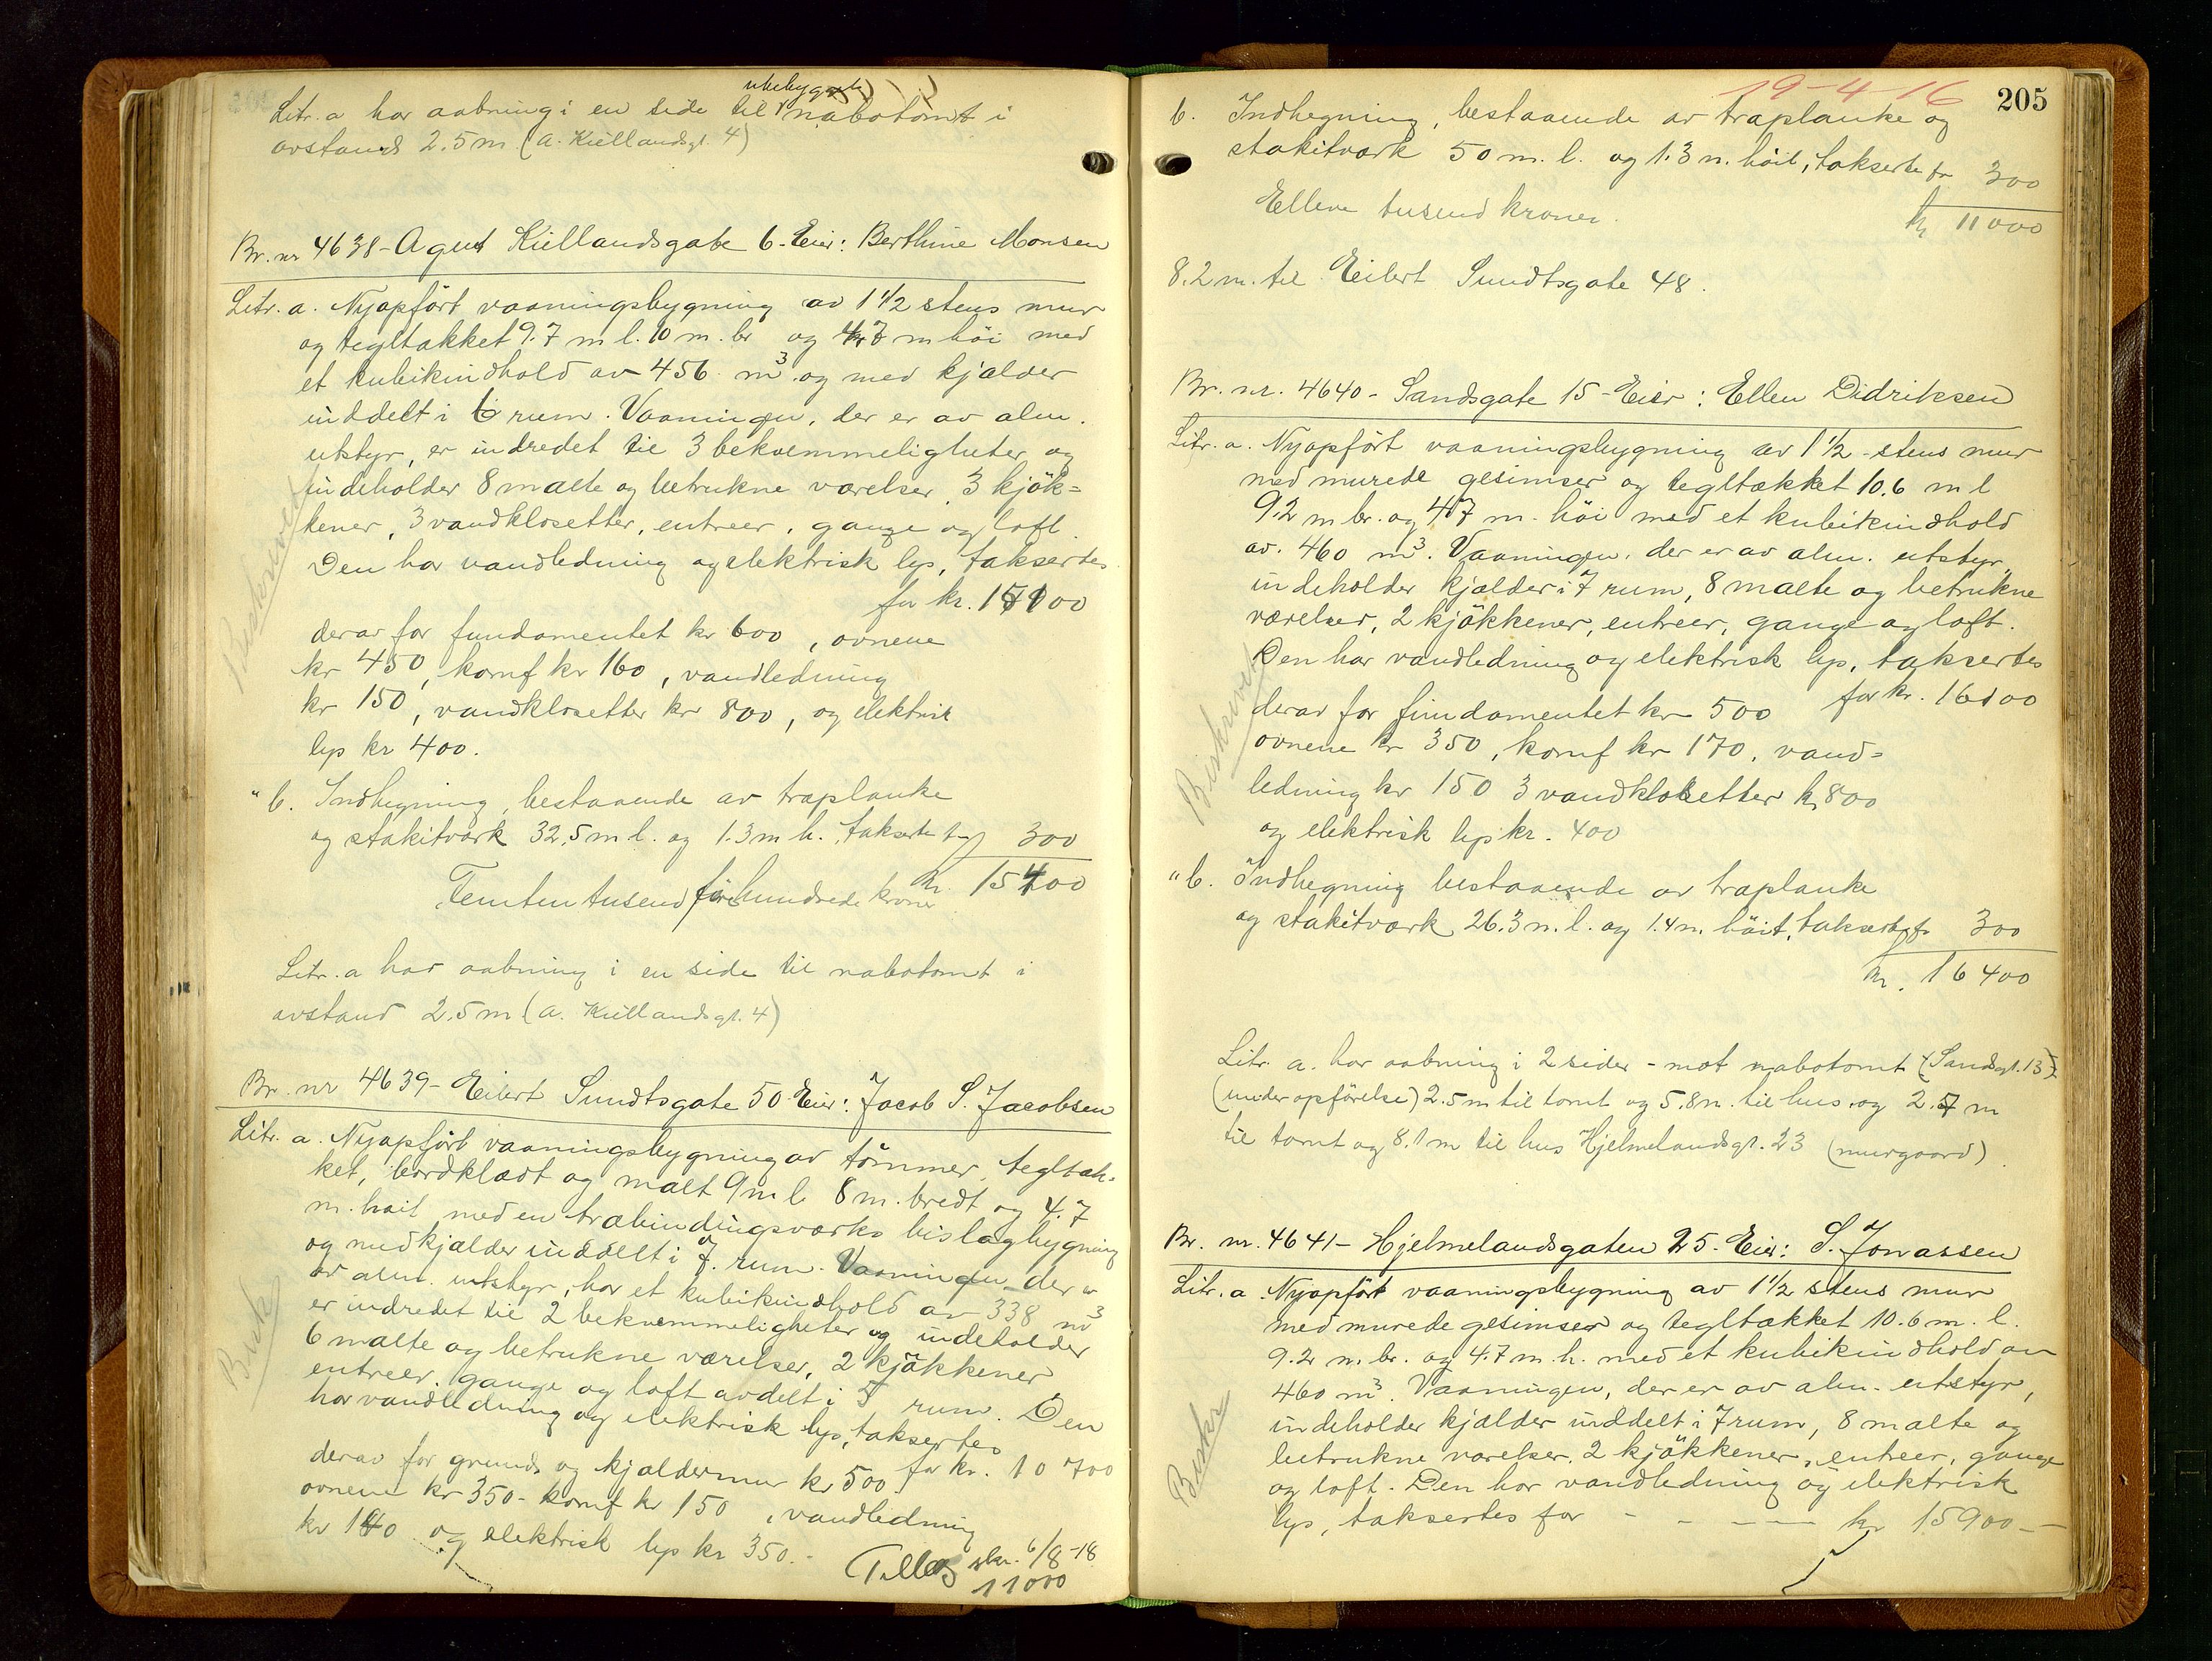 ubebygget
Litr. a har aabning i en side til nabotomt i
avstand 2.5 m (A. Kiellandsgt. 4)
Br. nr 4638 - Agent Kiellandsgate 6 - Eier: Berthine Monsen
Litr. a. Nyopført vaaningsbygning av 1 1/2 stens mur
og tegltækket 9.7 m l. 10 m. br og 4.7 m høi med
et kubikindhold av 456 m³ og med kjælder
inddelt i 6 rum. Vaaningen, der er av alm.
utstyr, er indredet til 3 bekvemmeligheter og
indeholder 8 malte og betrukne værelser, 3 kjøk=
kener, 3 vandklosetter, entreer, gange og loft.
Den har vandledning og elektrisk lys, taksertes
for kr. 15100
derav for fundamentet kr 600, ovnene
kr 450, komf kr 160, vandledning
kr 150, vandklosetter kr 800, og elektrisk
lys kr 400.
Beskrevet
" b. Indhegning, bestaaende av træplanke
og stakitværk 32,5 m l. og 1.3 m h., taksertes for 300
kr. 15400
Femten tusend fire hundrede kroner
Litr. a har aabning i en side til nabotomt i
avstand 2.5 m (A. Kiellandsgt. 4)
Br. nr 4639 - Eilert Sundtsgate 50 Eier: Jacob S. Jacobsen
Litr. a. Nyopført vaaningsbygning av tømmer, tegltæk-
ket, bordklædt og malt 9 m l. 8 m. bredt og 4.7
m. høit med en træbindingsværks bislagbygning
og med kjælder inddelt i 7 rum. Vaaningen, der er
av alm. utstyr, har et kubikindhold av 338 m³
er indredet til 2 bekvemmeligheter og indeholder
6 malte og betrukne værelser, 2 kjøkkener
entreer, gange og loft avdelt i 5 rum. Den
har vandledning og elektrisk lys, taksertes
for kr. 10 700
derav for grund og kjældermur kr 500
ovnene kr 350 - komf kr 150, vandledning
kr 140 og elektrisk lys kr 350.-
Besk
6/8-18
11000
19-4-16
205
b. Indhegning, bestaaende av træplanke og
stakitværk 50 m. l. og 1.3 m. høit, taksertes for 300
kr 11000
Elleve tusend kroner.
8.2 m. til Eilert Sundtsgate 48.
Br. nr. 4640 - Sandsgate 15 - Eier: Ellen Didriksen
Litr. a. Nyopført vaaningsbygning av 1 1/2 - stens mur
med murede gesimser og tegltækket 10.6 m l
9.2 m br. og 4.7 m. høi med et kubikindhold
av 460 m³. Vaaningen, der er av alm. utstyr,
indeholder kjælder i 7 rum, 8 malte og betrukne
værelser, 2 kjøkkener, entreer, gange og loft.
Den har vandledning og elektrisk lys, taksertes
for kr. 16100
derav for fundamentet kr 500
ovnene kr 350, komf kr 170, vand=
ledning kr 150 3 vandklosetter kr 800
og elektrisk lys kr. 400
Beskrevet
" b. Indhegning bestaaende av træplanke
og stakitværk 26.3 m. l. og 1.4 m. høit, taksertes for 300
kr. 16400
Litr. a. har aabning i 2 sider - mot nabotomt (Sandsgt. 13)
(under opførelse) 2.5 m til tomt og 5.8 m. til hus, og 2.7 m
til tomt og 8.1 m til hus Hjelmelandsgt. 23 (murgaard).
Br. nr. 4641 - Hjelmelandsgaten 25. Eier: S. Jonassen
Litr. a. Nyopført vaaningsbygning av 1 1/2 stens mur
med murede gesimser og tegltækket 10.6 m. l.
9.2 m. br. og 4.7 m. h. med et kubikindhold av
460 m³. Vaaningen, der er av alm. utstyr,
indeholder kjælder inddelt i 7 rum, 8 malte og
betrukne værelser, 2 kjøkkener, entreer, gange
og loft. Den har vandledning og elektrisk
lys, taksertes for - - - - kr 15900 -
Beskr